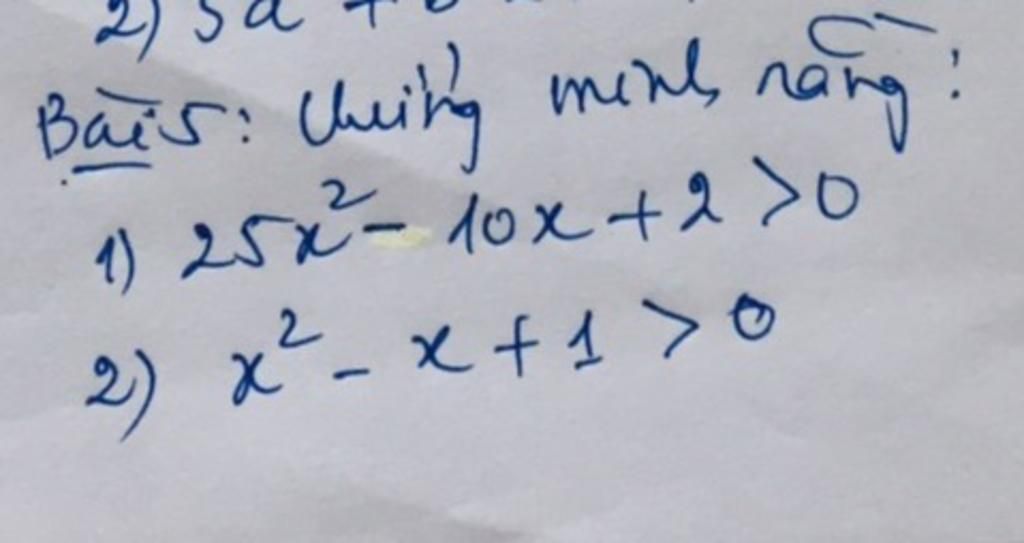 2) 3a +
Bài 5: Chứng minh rằng:
1) 25x² - 10x + 2 > 0
2) x² - x + 1 > 0